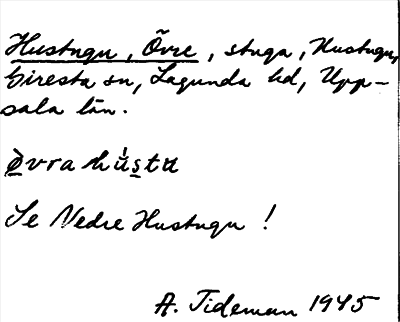 Hustugu, Övre, stuga, Hustugu,
Giresta sn, Lagunda hd, Upp-
sala län.
òvra hú̀stu
Se Nedre Hustugu!
A. Tideman 1945